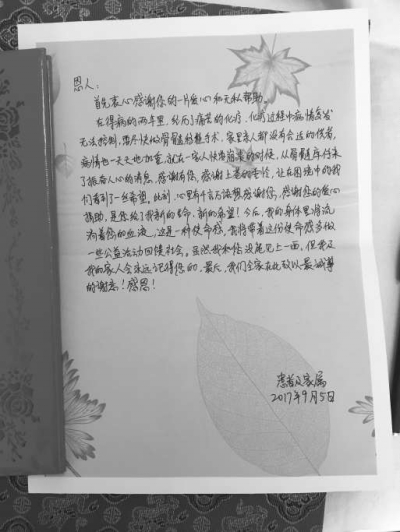 恩人：
首先衷心感谢您的一片爱心和无私帮助。
在得病的两年里，经历了痛苦的化疗，化疗过程中病情反复
无法控制，需尽快做骨髓移植手术，家里亲人都没有合适的供者，
病情也一天天地加重，就在一家人快要崩溃的时候，从骨髓库传来
了振奋人心的消息，感谢有您，感谢上苍的眷顾，让在困境中的我
们看到了一丝希望，此刻，心里有千言万语想感谢您，感谢您的爱心
捐助，是您给了我新的生命，新的希望！今后，我的身体里将流
淌着您的血液，这是一种使命感，我将带着这份使命感多做
一些公益活动回馈社会。虽然我和您没能见上一面，但我及
我的家人会永远记得您的，最后，我们全家在此致以最诚挚
的谢意！感恩！
患者及家属
2017年9月5日